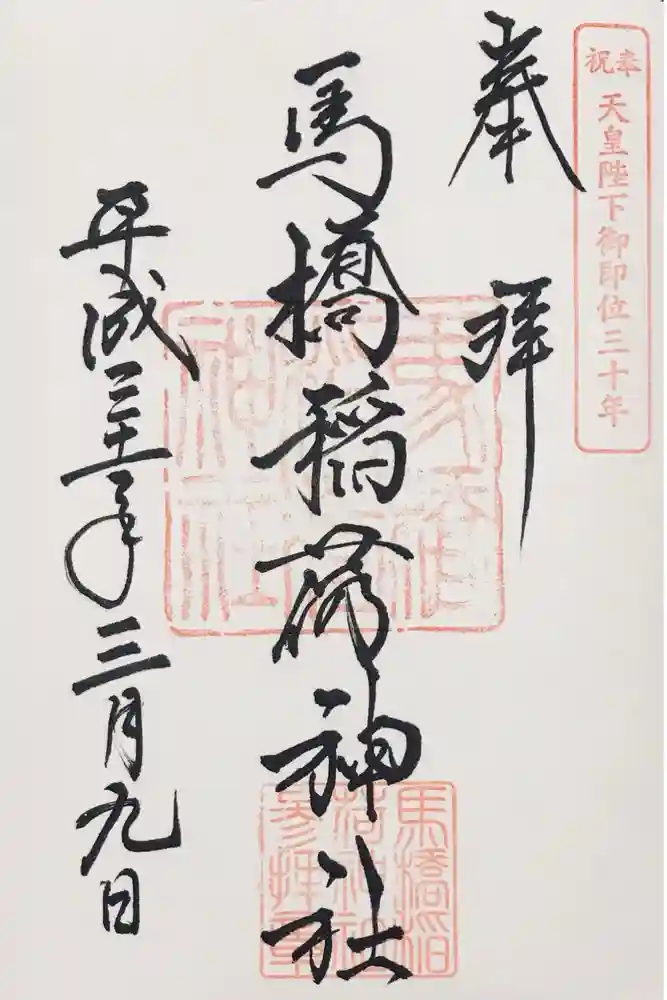 奉祝
天皇陛下御即位三十年
奉拝
馬橋稲荷神社
平成三十一年三月九日
馬橋稲
荷神社
参拝章